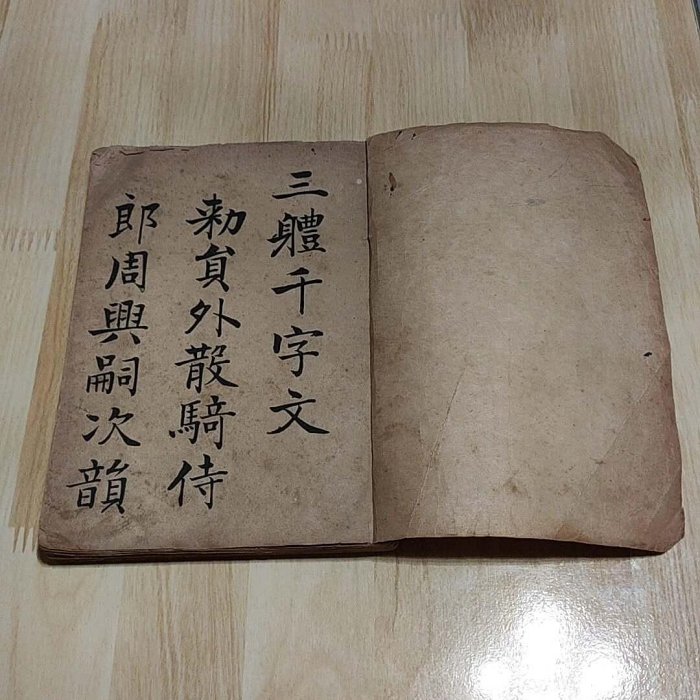 三軆千字文
勑貟外散騎侍
郎周興嗣次韻